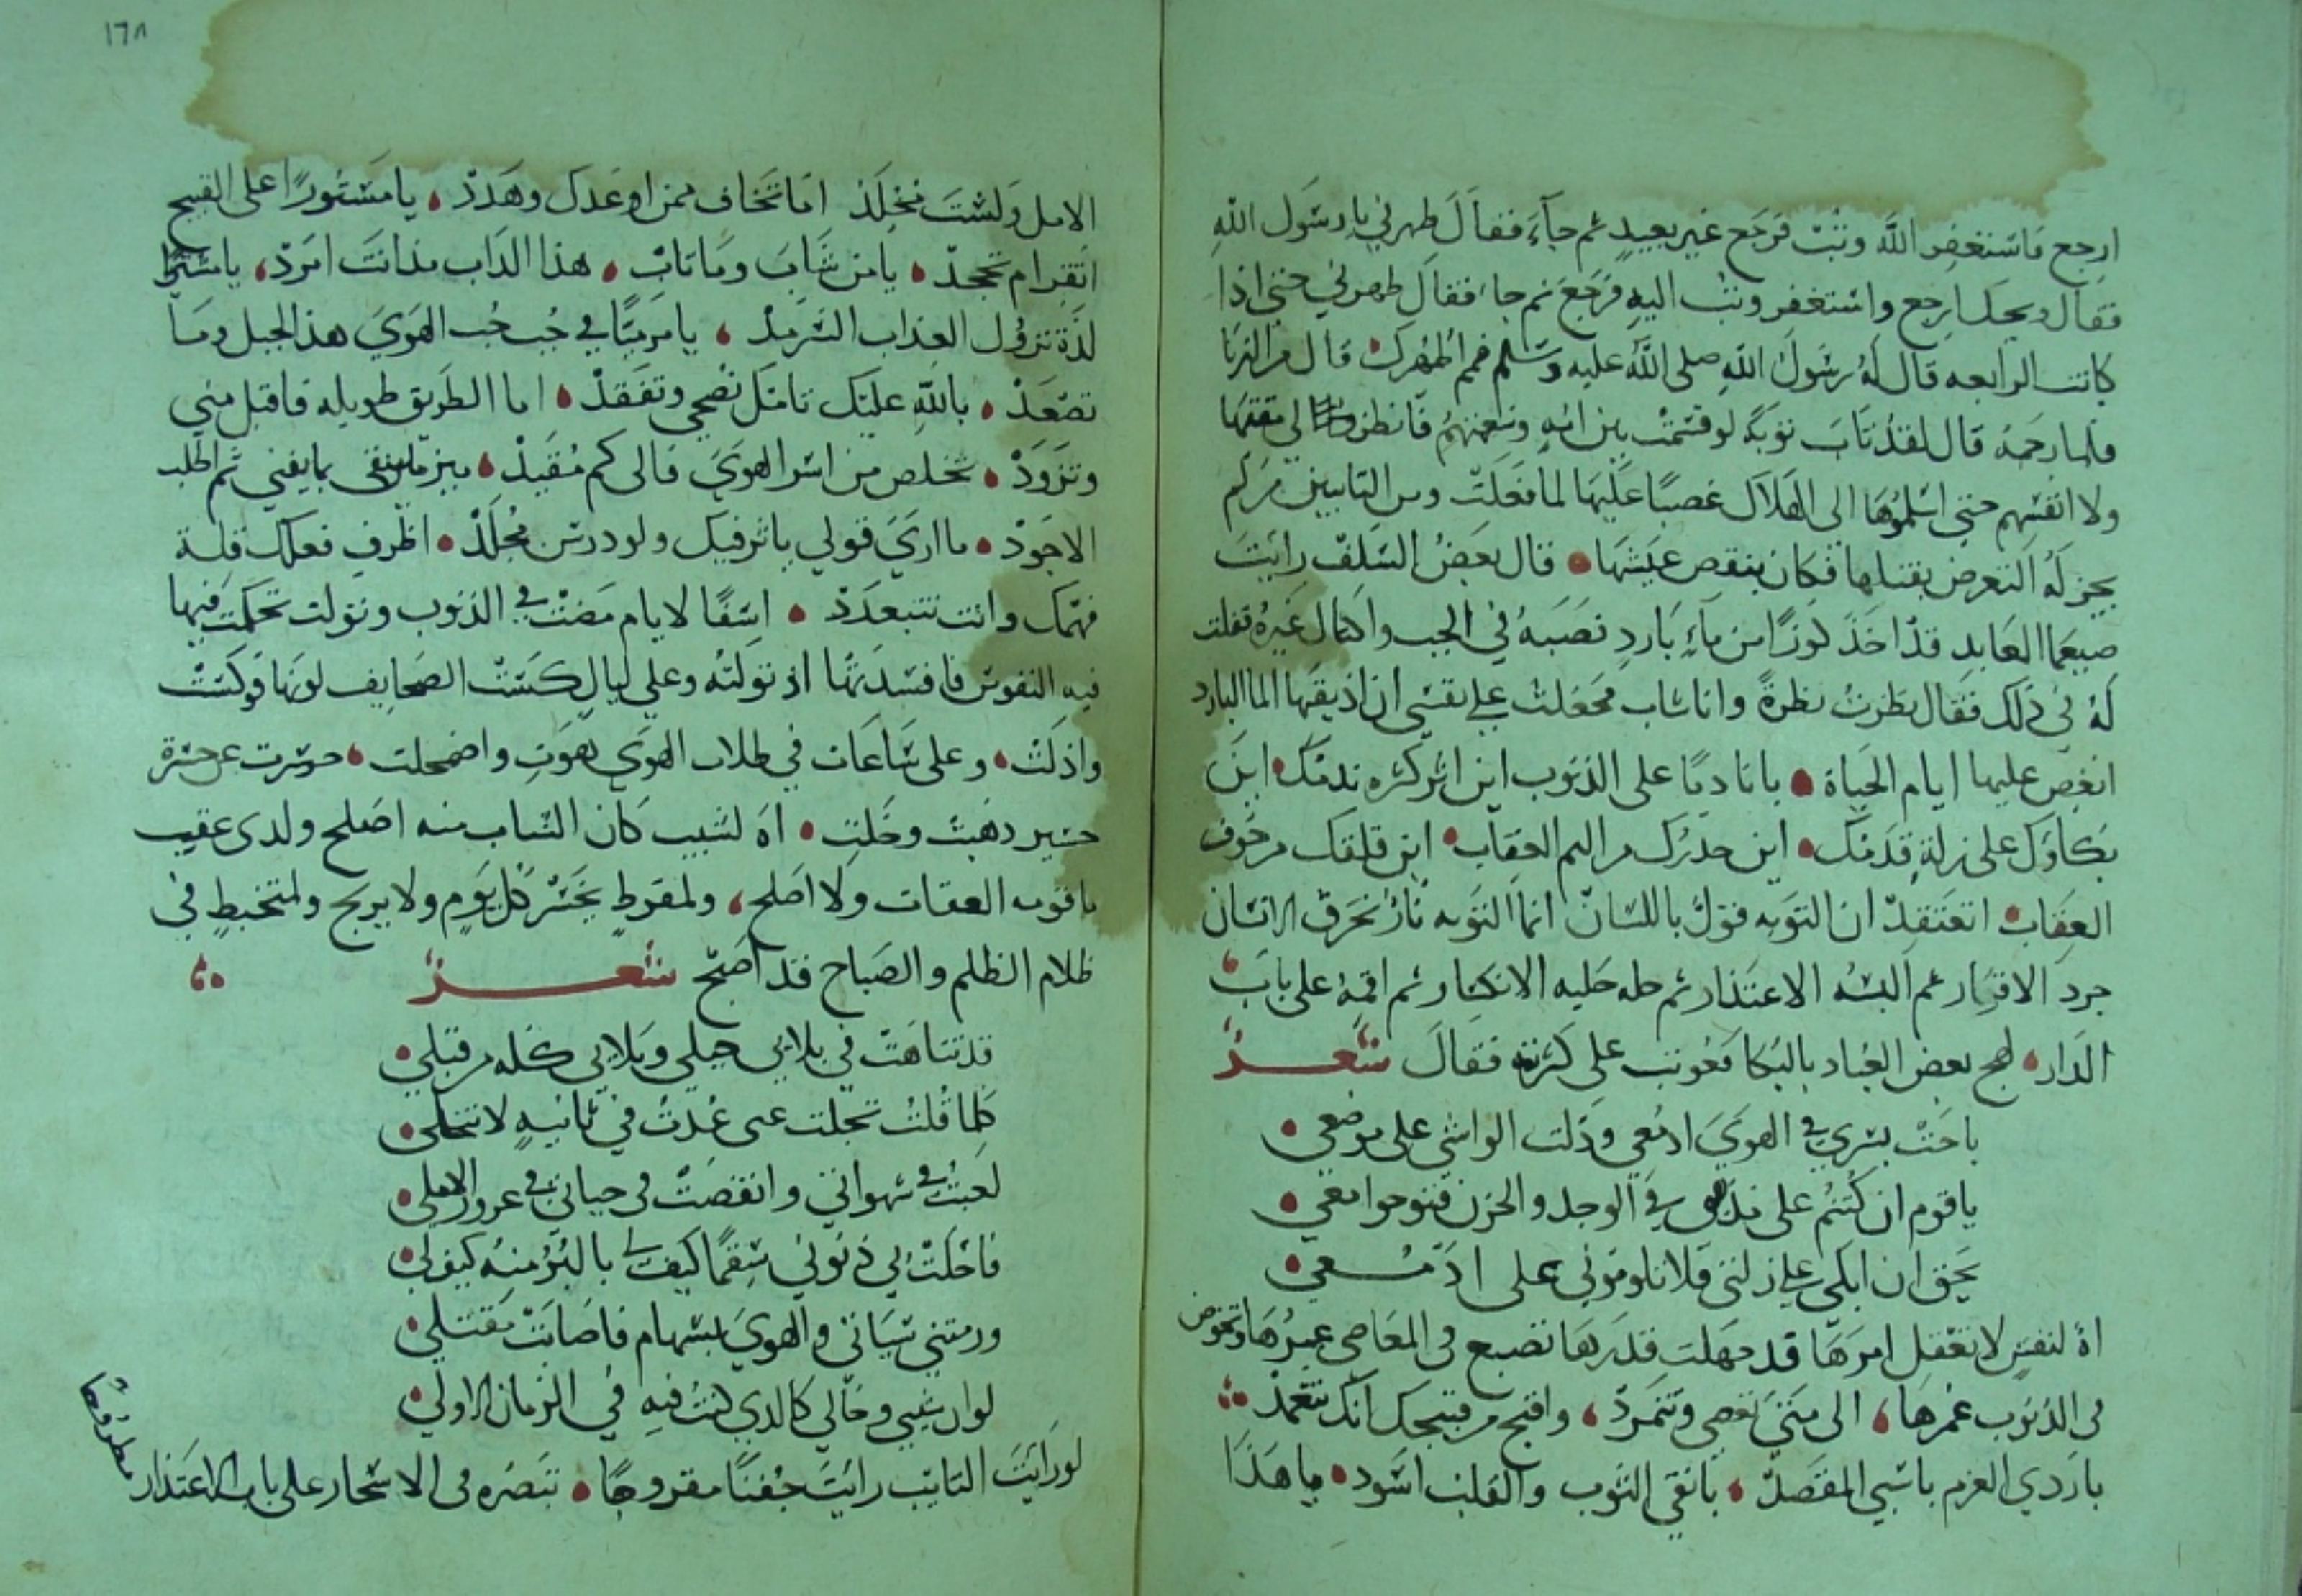 ارجع فاستغفر الله وتب فرجع غير بعيد ثم جاء فقال طهرني يا رسول الله
فقال ويحك ارجع واستغفر وتب اليه فرجع ثم جاء فقال طهرني حتى اذا
كانت الرابعه قال له رسول الله صلى الله عليه وسلم فمم اطهرك قال من الزنا
فلما رجمه قال لقد تاب توبة لو قسمت بين امة وسعتهم فانظروا الى مقتها
ولا انفسهم حتى اسلموها الى الهلاك غضبا عليها لما فعلت ومن التايبين من لم
يجز له التعرض بقتلها فكان ينقص عيشها قال بعض السلف رايت
ضيغما العابد قد اخذ كوزا من ماء بارد فصبه في الجب واكتال غيره فقلت
له في ذلك فقال نظرت نظرة وانا شاب فجعلت على نفسي ان اذيقها الما البارد
انغص عليها ايام الحياة يا نادما على الذنوب اين اثر كثره ندمك اين
بكاوك على زلة قدمك اين حذرك من اليم العقاب اين قلقك من خوف
العقاب اتعتقد ان التوبه قول باللسان انما التوبه نار تحرق الانسان
جرد الاقرار ثم البسه الاعتذار ثم حله حليه الانكسار ثم اقمه على باب
الدار لهج بعض العباد بالبكا فعوتب على كثرته فقال شعر
باحت بسري في الهوى ادمعي ودلت الواشي على موضعي
يا قوم ان كنتم على مذهبي في الوجد والحزن فنوحوا معي
يحق ان ابكي على زلتي فلا تلوموني على ادمعي
اه لنفس لا تعقل امرها قد جهلت قدرها تضيع في المعاصي عمرها وتخوض
في الذنوب غمرها الى متى تعصي وتتمرد واقبح من قبيحك انك تتعمد
يا ردي العزم يا سيي المقصد يا نقي الثوب والقلب اسود يا هذا
١٦٨
الامل ولست مخلد اما تخاف ممن اوعدك وهدد يا مستورا على القبيح
اتقر ام تجحد يا من شاب وما تاب هذا الداب مذ انت امرد يا مشتريا
لذة تزول العذاب السرمد يا مرميا في جب حب الهوى هذا الحبل وما
تصعد بالله عليك تامل نصحي وتفقد اما الطريق طويله فاقبل مني
وتزود تخلص من اسر الهوى فالى كم مقيد ميز ما يبقى بما يفني ثم اطلب
الاجود ما ارى قولي ياثر فيك ولو درس مجلد اظرف فعلك قلة
فهمك وانت تتبعدد اسفا لايام مضت في الذنوب وتولت تحكمت فيها
فيه النفوس فافسدتها اذ تولته وعلى ليال كست الصحايف لونها فوكست
واذلت وعلى ساعات في طلاب الهوى هوت واضمحلت حسرت عن حسرة
حتير دهبت وخلت اه لشيب كان الشباب منه اصلح ولدى عقيب
يا قومه العقات ولا اصلح ولمفرط يخسر كل يوم ولا يربح ولمتخبط في
ظلام الظلم والصباح قد اصبح شعر
قد تناهت في بلايي حيلي وبلايي كله من قبلي
كلما قلت تجلت عني عدت في ثانيه لا تنجلي
لعبت في شهواتي وانقضت في حياتي في غرور الامل
فاحلت بي ذنوبي سقما كيف لي بالبرؤ منه كيف لي
ورمتني سياتي والهوى بسهام فاصابت مقتلي
لو ان شيبي وحالي كالذي كنت فيه في الزمان الاول
لو رايت التايب رايت جفنا مقروحا تبصره في الاسحار على باب الاعتذار مطروحا